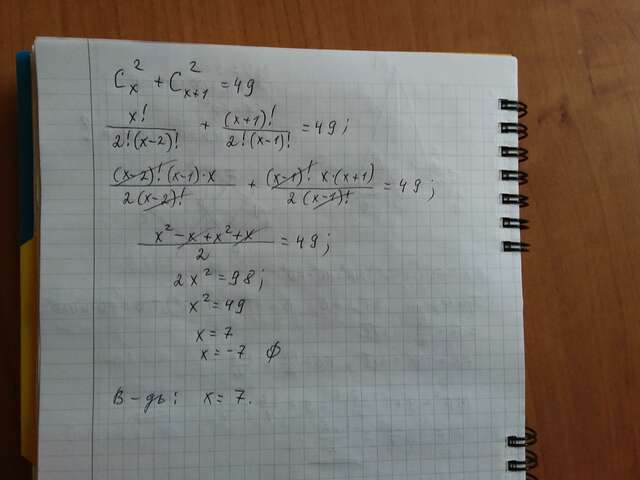 C_x^2 + C_{x+1}^2 = 49
x!/2!(x-2)! + (x+1)!/2!(x-1)! = 49;
(x-2)!(x-1)·x/2(x-2)! + (x-1)! x·(x+1)/2(x-1)! = 49;
x²-x+x²+x/2 = 49;
2x² = 98;
x² = 49
x = 7
x = -7 ∅
В-дь: x = 7.